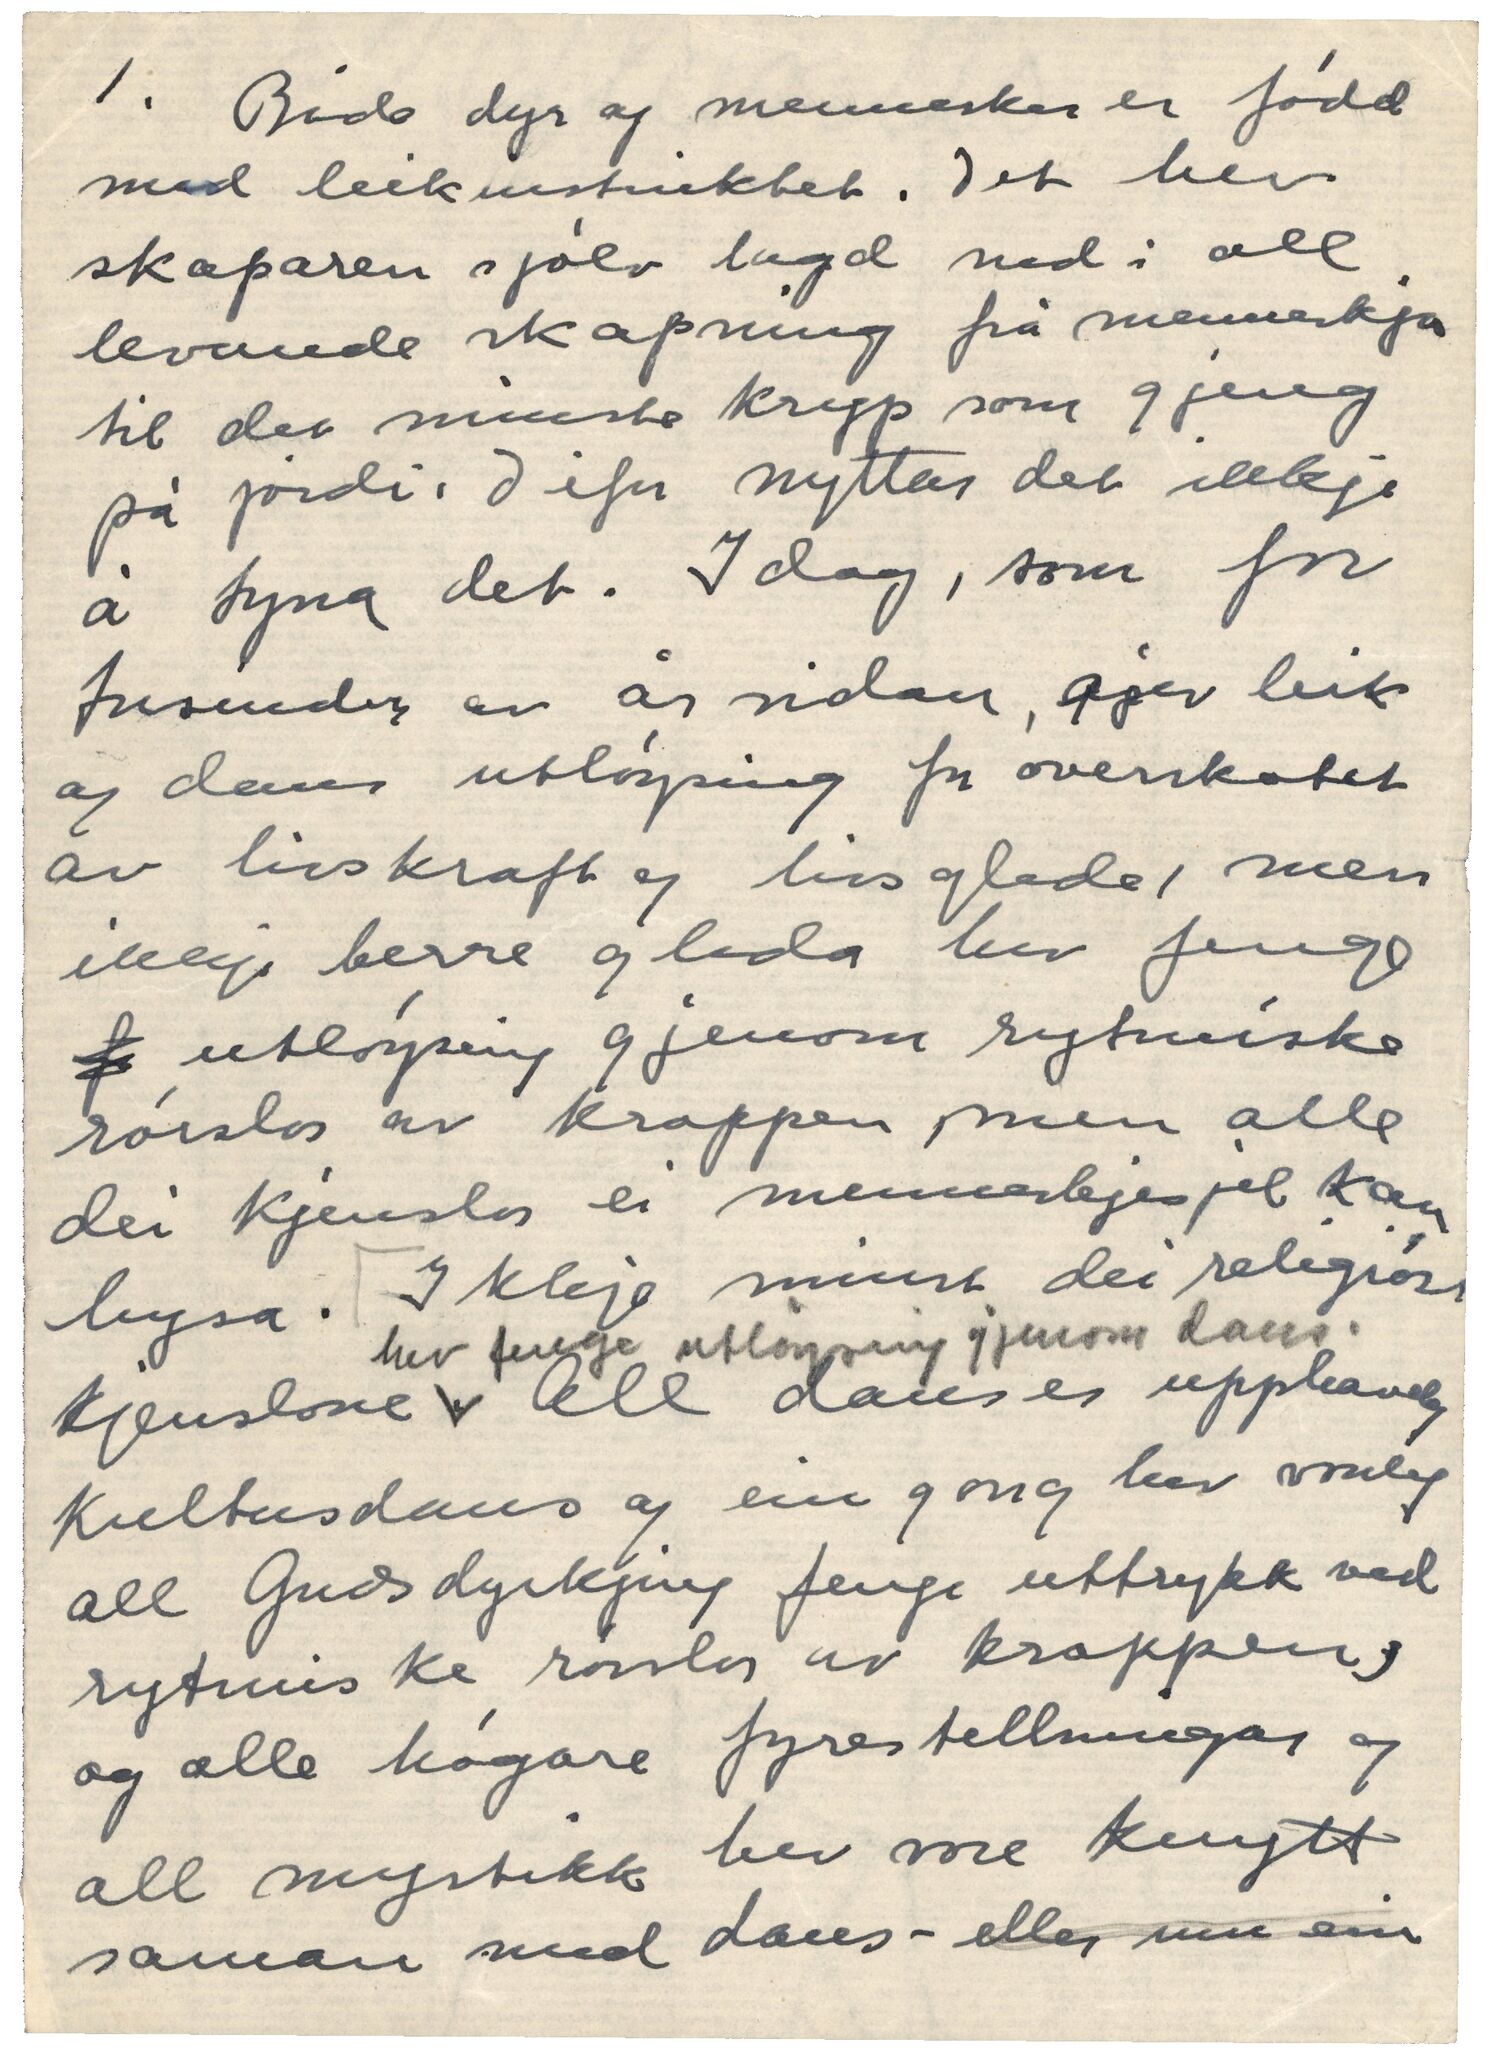 1. Både dyr og mennesker er fódd
med leikinstinktet. Det hev
skaparen sjólv lagd ned i all
levande skapning frå menneskja
til det minste kryp som gjeng
på jordi. Difor nyttar det ikkje
å tyna det. I dag, som for
tusunder av år sidan, gjev leik
og dans utlóysing for óverskotet
av livskraft og livsglede, men
ikkje berre gleda hev fenge
utlóysing gjenom rytmiske
rórslor av kroppen, men alle
dei kjenslor ei menneskjesjel kan
hysa. Ikkje minst dei religióse
hev fenge utlóysing gjenom dans.
kjenslone All dans er upphaveleg
Kultusdans og ein gong hev vonleg
all Gudsdyrkjing fenge uttrykk ved
rytmiske rórslor av kroppen,
og alle hógare fyrestellningar og
all mystikk hev vore knytt
saman med dans - eller um ein